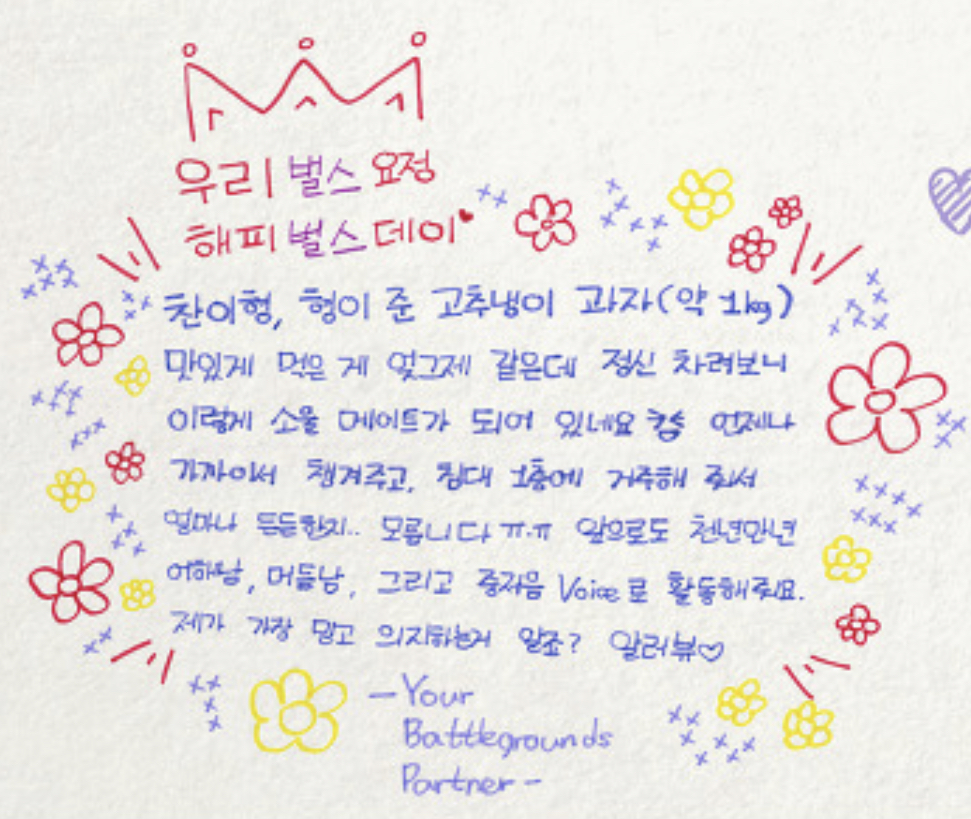 우리 벌스 요정
해피 벌스데이
찬이형, 형이 준 고추냉이 과자(약 1kg)
맛있게 먹은 게 엊그제 같은데 정신 차려보니
이렇게 소울 메이트가 되어 있네요 언제나
가까이서 챙겨주고, 침대 1층에 거주해 줘서
얼마나 든든한지.. 모릅니다 ㅠ.ㅠ 앞으로도 천년만년
어하남, 머들남, 그리고 중저음 Voice로 활동해줘요.
제가 가장 믿고 의지하는거 알죠? 알러뷰♡
-Your
Battlegrounds
Partner-